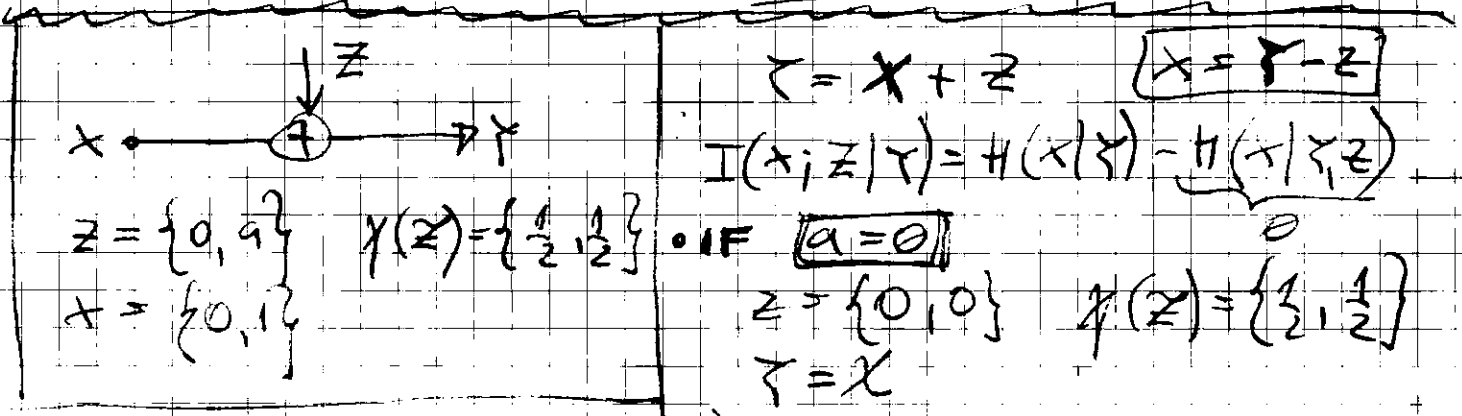 Z
X + Y
Z = {0, a} p(Z) = {1/2, 1/2}
X = {0, 1}
Y = X + Z X = Y - Z
I(X; Z | Y) = H(X | Y) - H(X | Y, Z)
0
• IF a = 0
Z = {0, 0} p(Z) = {1/2, 1/2}
Y = X